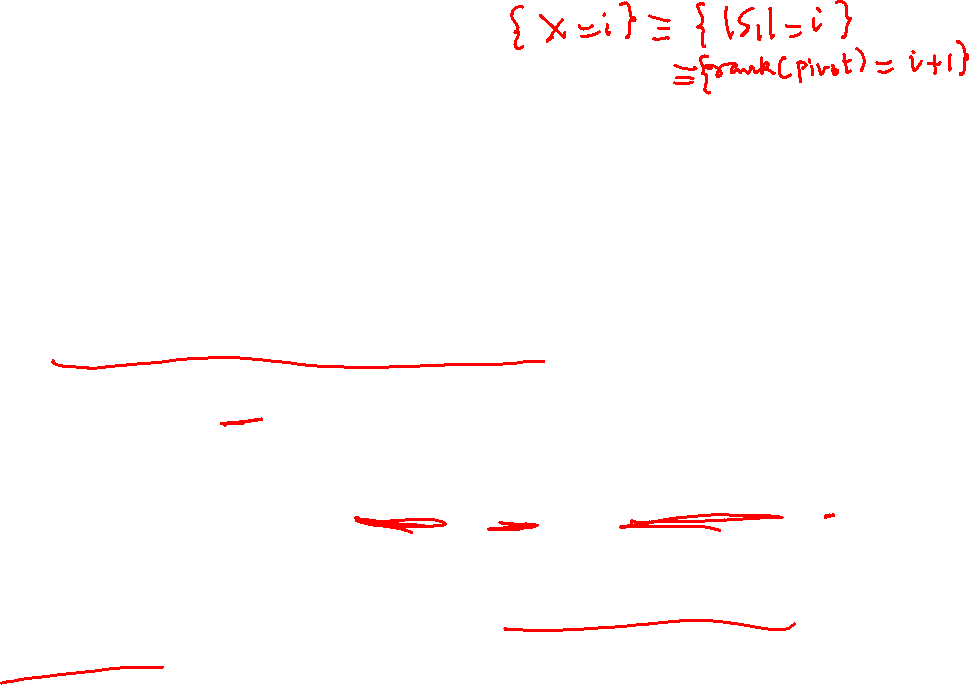 { X = i } ≡ { |S₁| = i }
≡ {rank(pivot) = i+1}